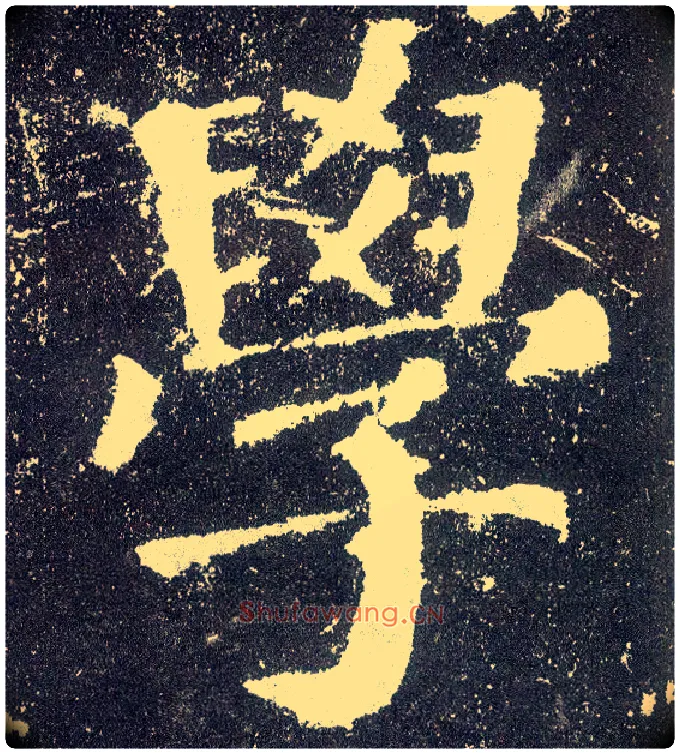 學
Shufawang.CN